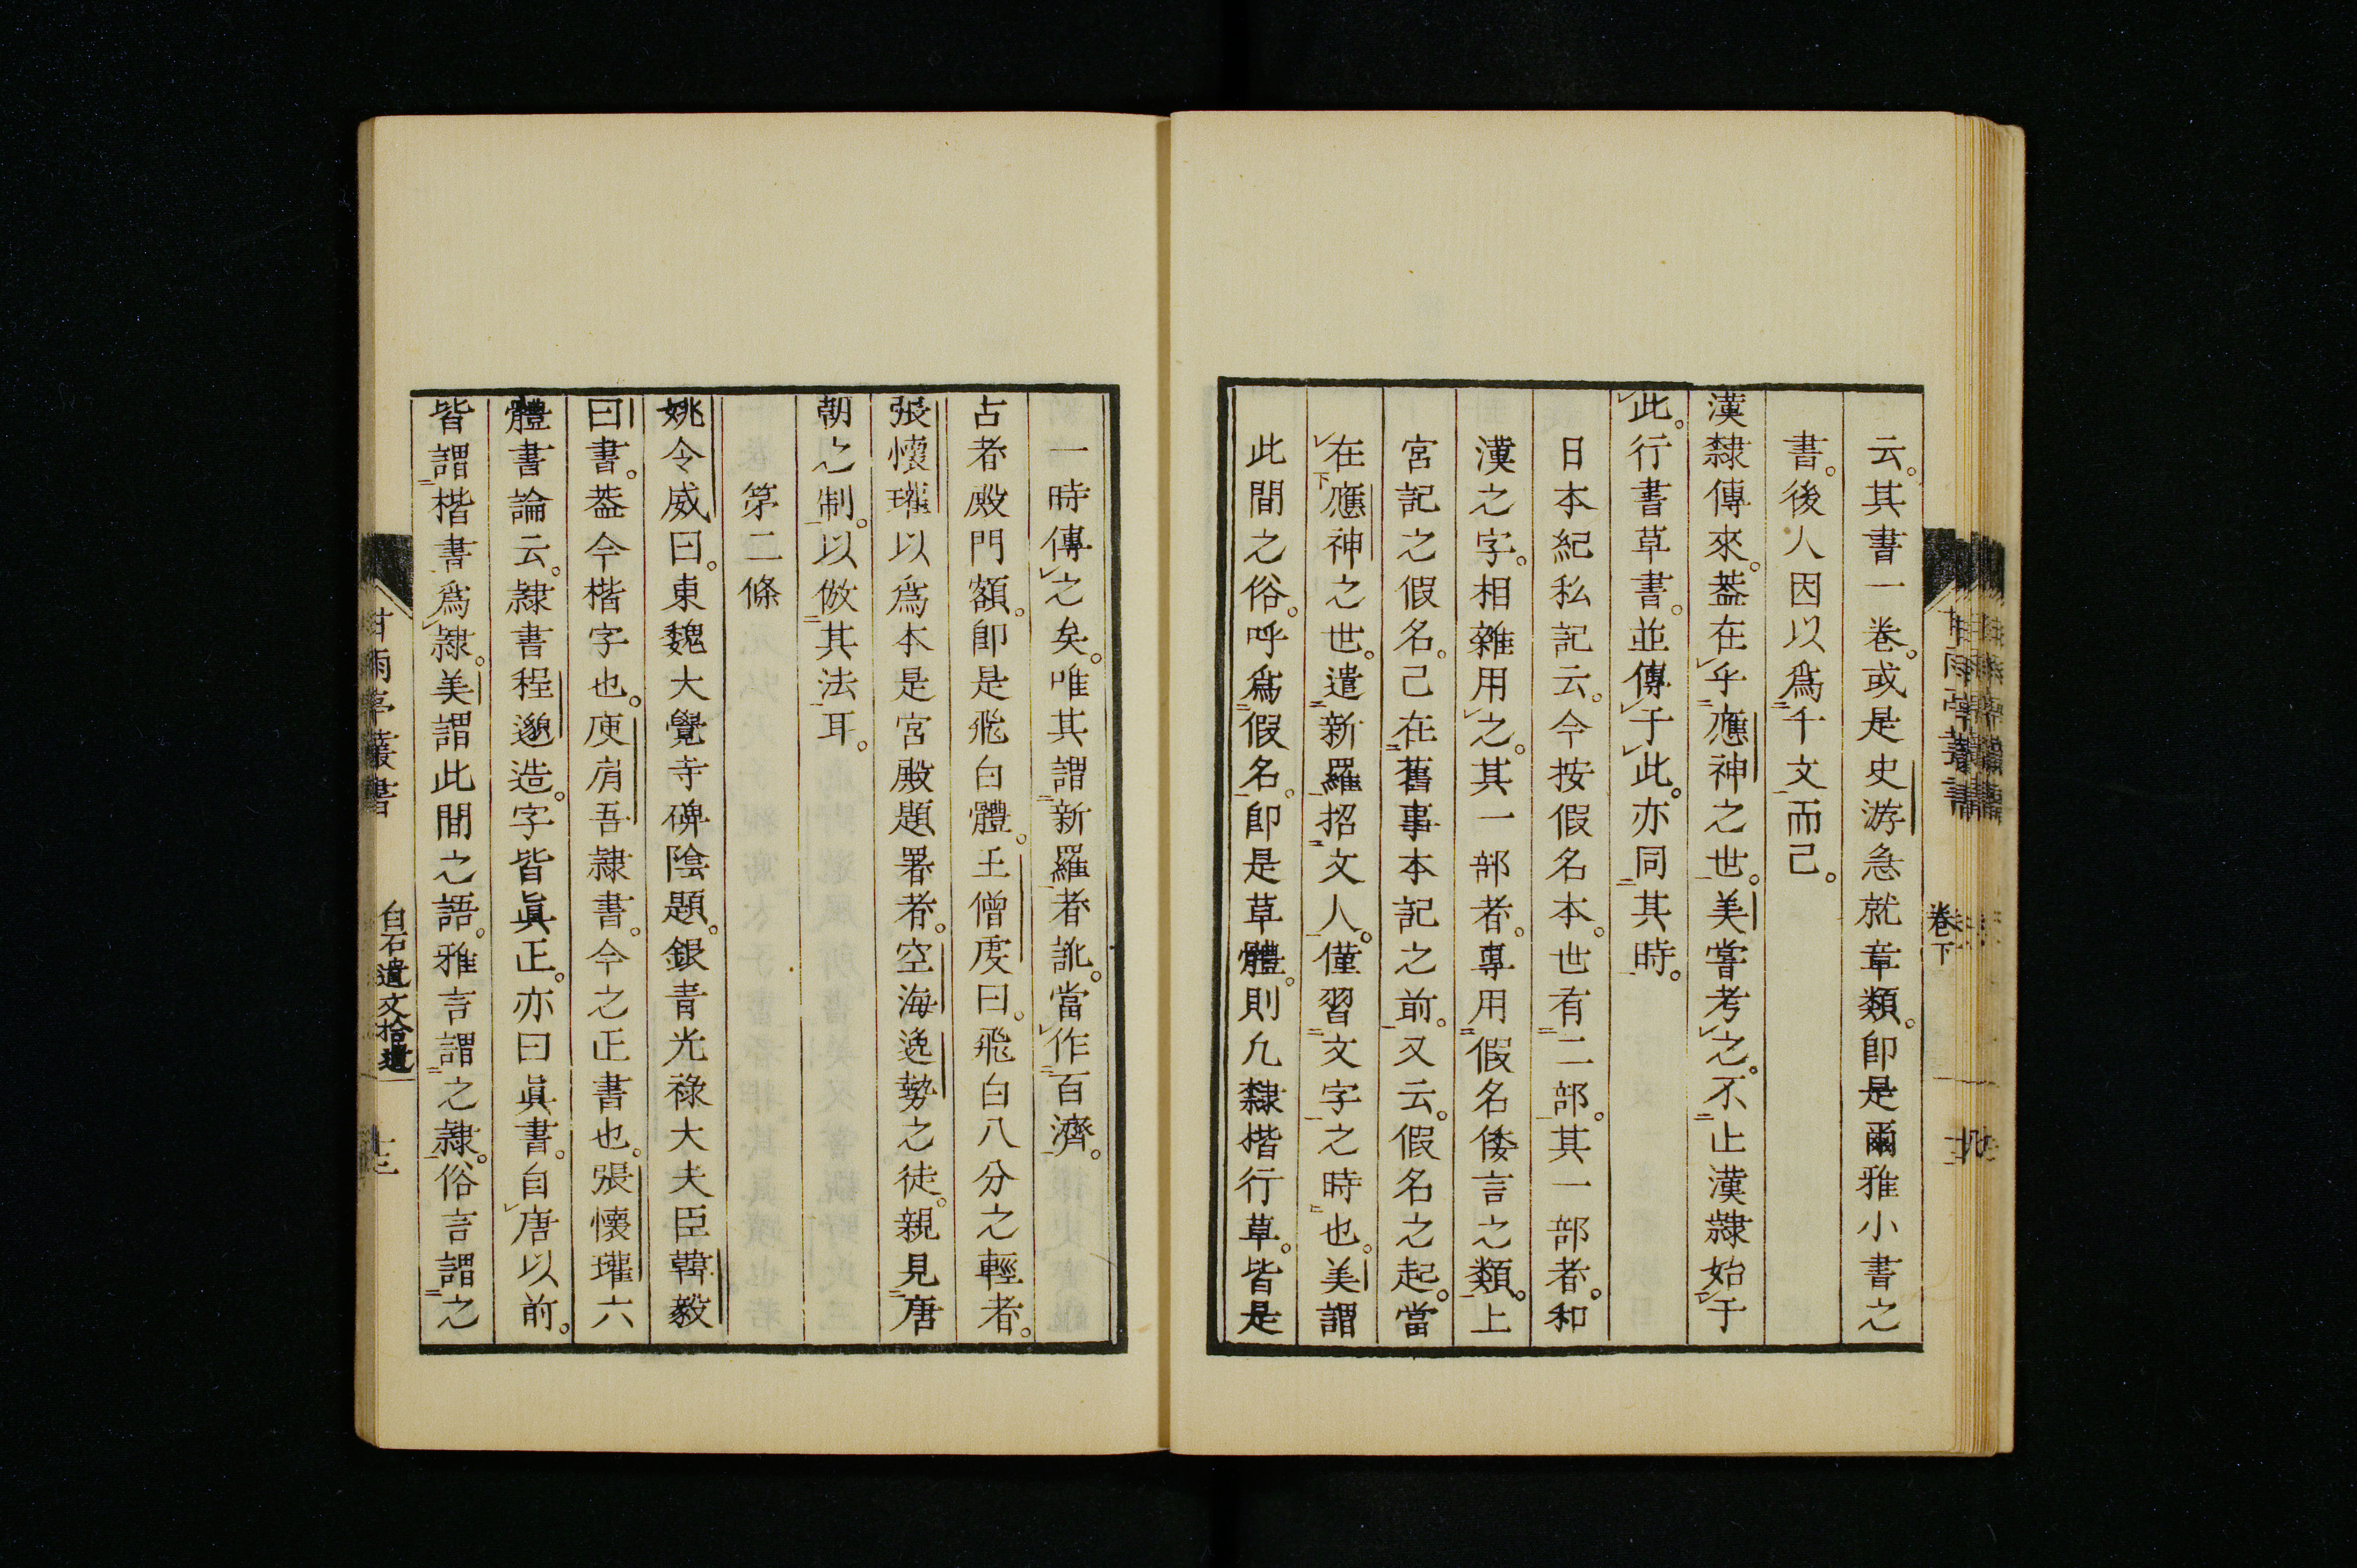 云。其書一卷。或是史游急就章類。卽是爾雅小書之
書。後人因以爲千文而己。
漢隸傳來。葢在乎應神之世。美嘗考之。不止漢隸始于
此。行書草書。並傳于此。亦同其時。
日本紀私記云。今按假名本。世有二部。其一部者。和
漢之字。相雜用之。其一部者。專用假名倭言之類。上
宮記之假名。己在舊事本記之前。又云。假名之起。當
在應神之世。遣新羅招文人。僅習文字之時也。美謂
此間之俗。呼爲假名。卽是草體。則凢隸楷行草。皆是
卷下
一時傳之矣。唯其謂新羅者訛。當作百濟。
古者殿門額。卽是飛白體。王僧虔曰。飛白八分之輕者。
張懷瓘以爲本是宮殿題署者。空海逸勢之徒。親見唐
朝之制。以倣其法耳。
第二條
姚令威曰。東魏大覺寺碑陰題。銀青光祿大夫臣韓毅
曰書。葢今楷字也。庾肩吾隷書。今之正書也。張懷瓘六
體書論云。隷書程邈造。字皆眞正。亦曰眞書。自唐以前。
皆謂楷書爲隷。美謂此間之語。雅言謂之隷。俗言謂之
甘雨亭叢書
白石遺文拾遺